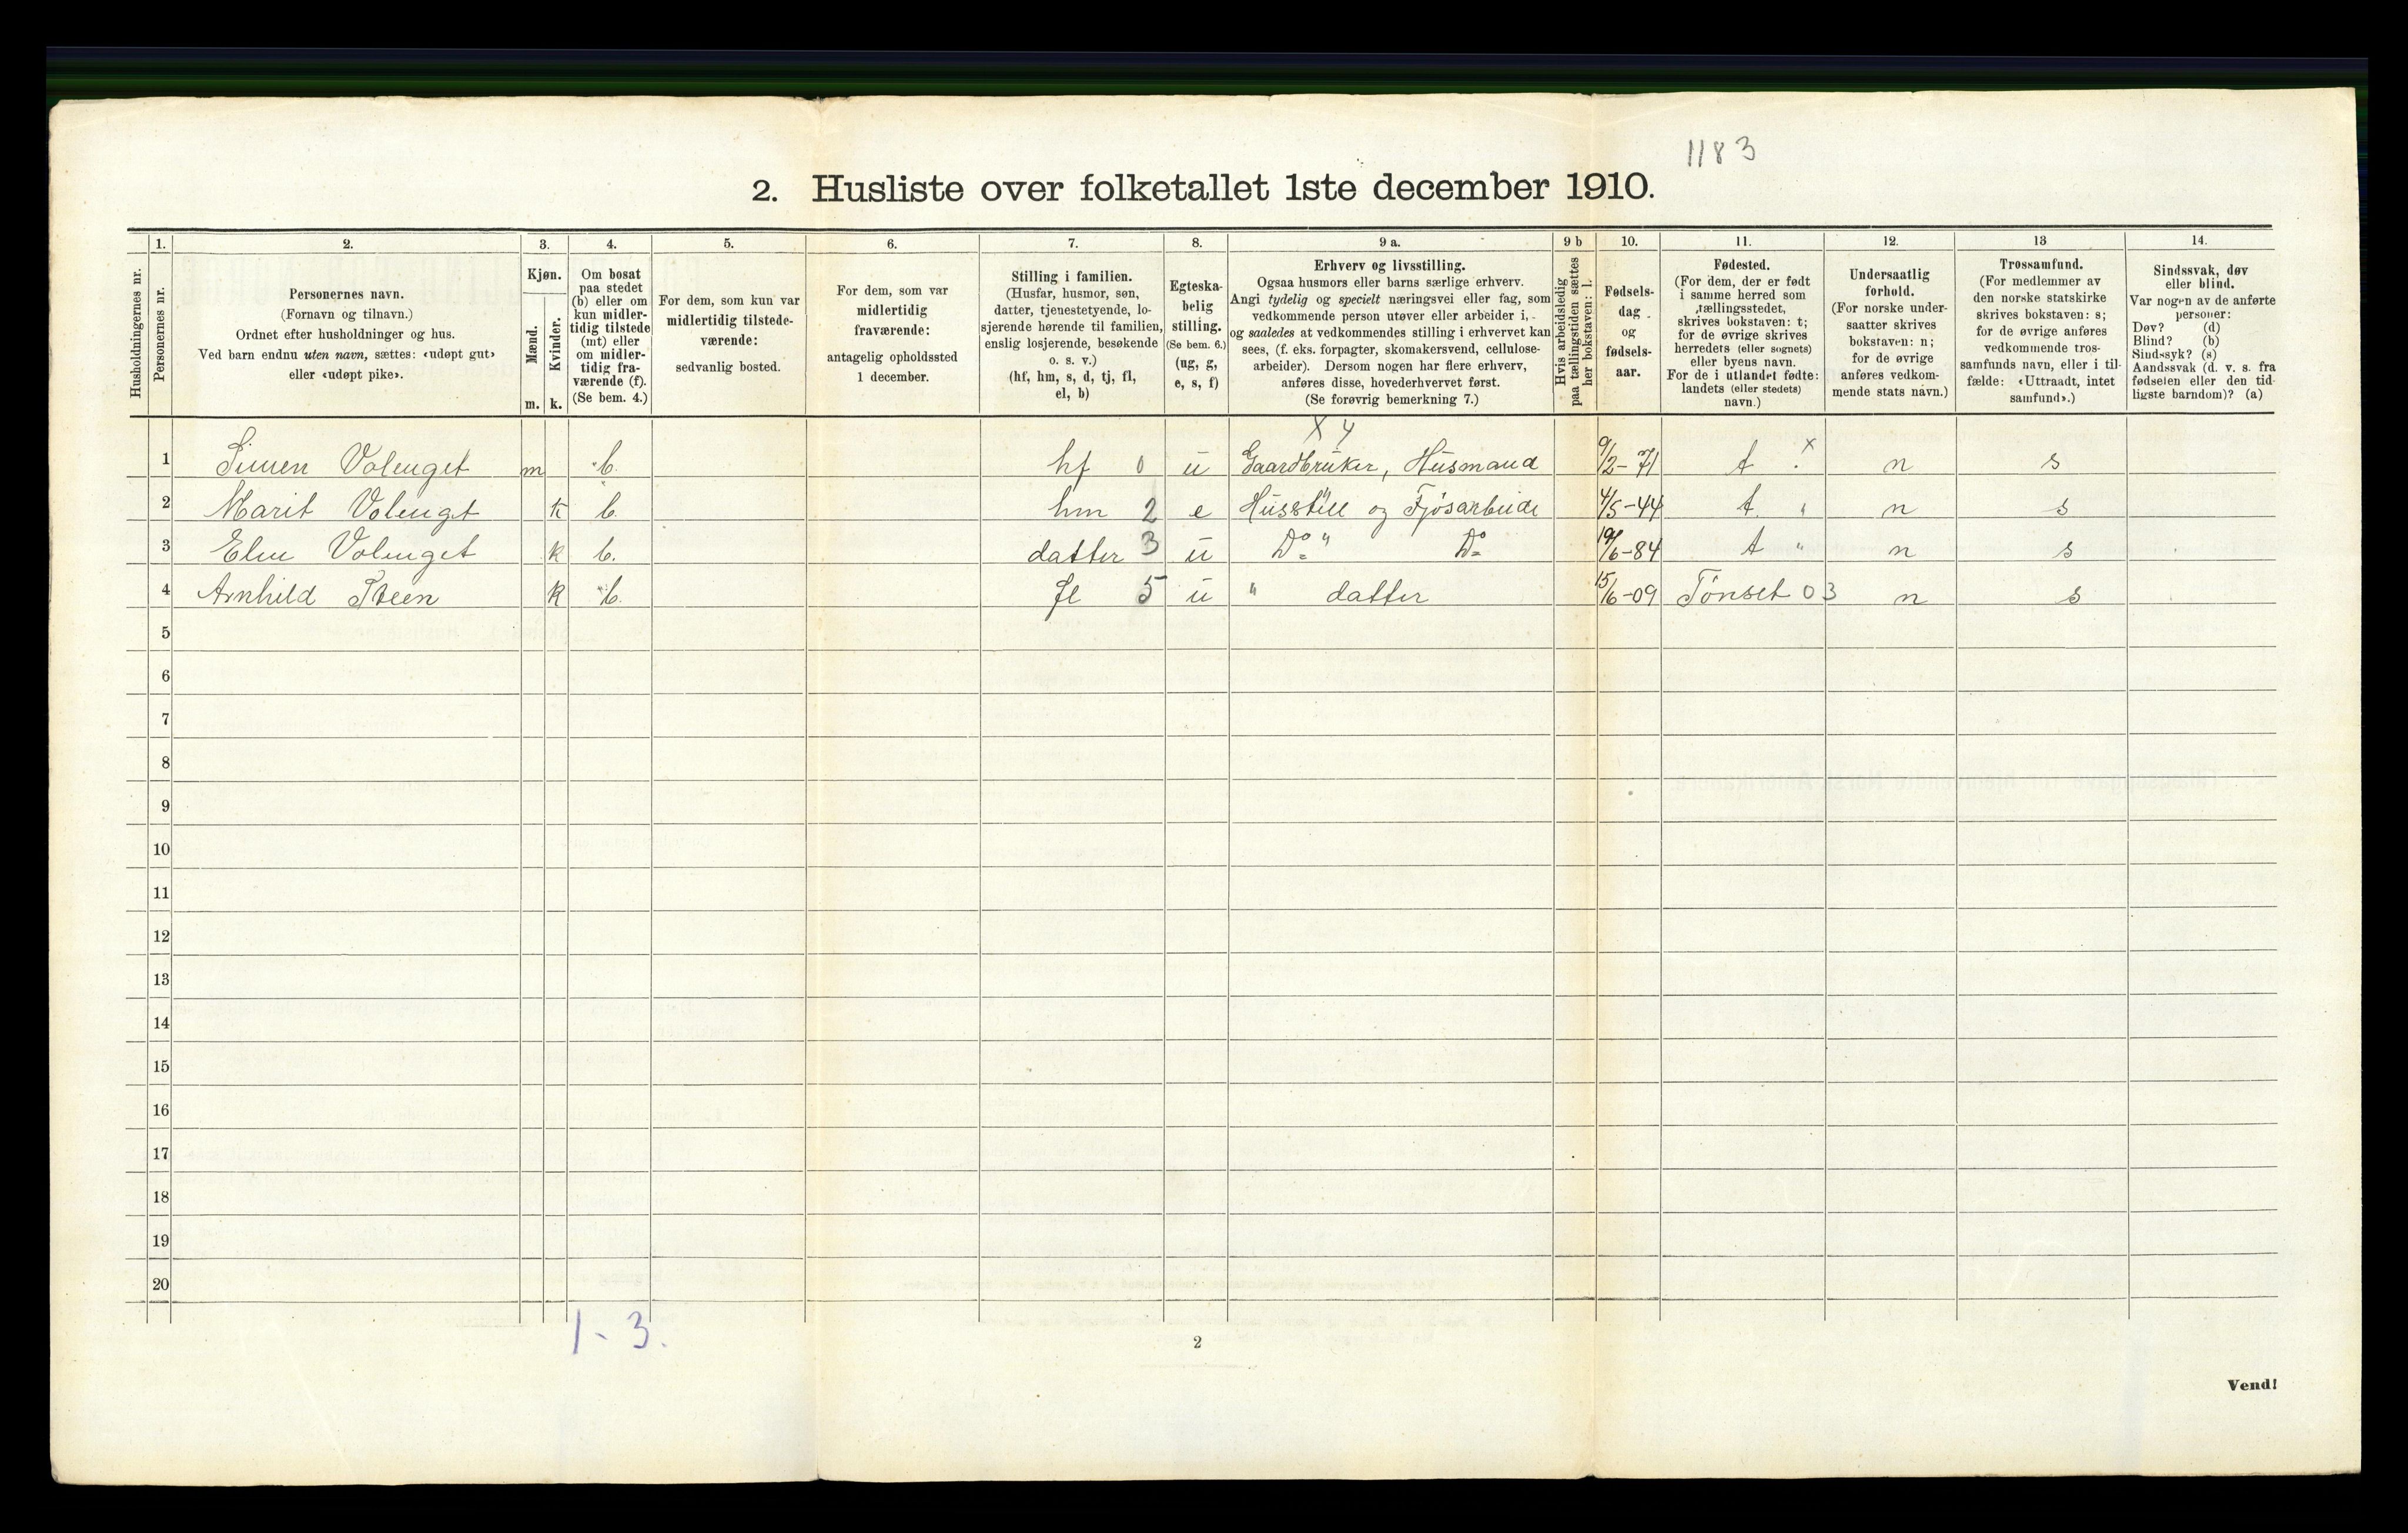 1183
2. Husliste over folketallet 1ste december 1910.
Husholdningernes nr.
1.
Personernes nr.
2.
Personernes navn.
(Fornavn og tilnavn.)
Ordnet efter husholdninger og hus.
Ved barn endnu uten navn, sættes: «udøpt gut»
eller «udøpt pike».
3.
Kjøn.
Mænd.
Kvinder.
m. k.
4.
Om bosat
paa stedet
(b) eller om
kun midler-
tidig tilstede
(mt) eller
om midler-
tidig fra-
værende (f).
(Se bem. 4.)
5.
For dem, som kun var
midlertidig tilstede-
værende:
sedvanlig bosted.
6.
For dem, som var
midlertidig
fraværende:
antagelig opholdssted
1 december.
7.
Stilling i familien.
(Husfar, husmor, søn,
datter, tjenestetyende, lo-
sjerende hørende til familien,
enslig losjerende, besøkende
o. s. v.)
(hf, hm, s, d, tj, fl,
el, b)
8.
Egteska-
belig
stilling.
(Se bem. 6.)
(ug, g,
e, s, f)
9 a.
Erhverv og livsstilling.
Ogsaa husmors eller barns særlige erhverv.
Angi tydelig og specielt næringsvei eller fag, som
vedkommende person utøver eller arbeider i,
og saaledes at vedkommendes stilling i erhvervet kan
sees, (f. eks. forpagter, skomakersvend, cellulose-
arbeider). Dersom nogen har flere erhverv,
anføres disse, hovederhvervet først.
(Se forøvrig bemerkning 7.)
9 b
Hvis arbeidsledig
paa tællingstiden sættes
her bokstaven: l.
10.
Fødsels-
dag
og
fødsels-
aar.
11.
Fødested.
(For dem, der er født
i samme herred som
tællingsstedet,
skrives bokstaven: t;
for de øvrige skrives
herredets (eller sognets)
eller byens navn.
For de i utlandet fødte:
landets (eller stedets)
navn.)
12.
Undersaatlig
forhold.
(For norske under-
saatter skrives
bokstaven: n;
for de øvrige
anføres vedkom-
mende stats navn.)
13
Trossamfund.
(For medlemmer av
den norske statskirke
skrives bokstaven: s;
for de øvrige anføres
vedkommende tros-
samfunds navn, eller i til-
fælde: «Uttraadt, intet
samfund».)
14.
Sindssvak, døv
eller blind.
Var nogen av de anførte
personer:
Døv? (d)
Blind? (b)
Sindssyk? (s)
Aandssvak (d. v. s. fra
fødselen eller den tid-
ligste barndom)? (a)
X 4
1 Simen Volenget m b. hf 0 u Gaardbruker, Husmand 9/2-71 t x n s
2 Marit Volenget k b. hm 2 e Husstell og Fjøsarbeide 4/5-44 t. " n s
3 Elen Volenget k b. datter 3 u Do " Do 19/6-84 t " n s
4 Arnhild Steen k b. fl 5 u " datter 15/6-09 Tönset 03 n s
5
6
7
8
9
10
11
12
13
14
15
16
17
18
19
20
1-3.
2
Vend!